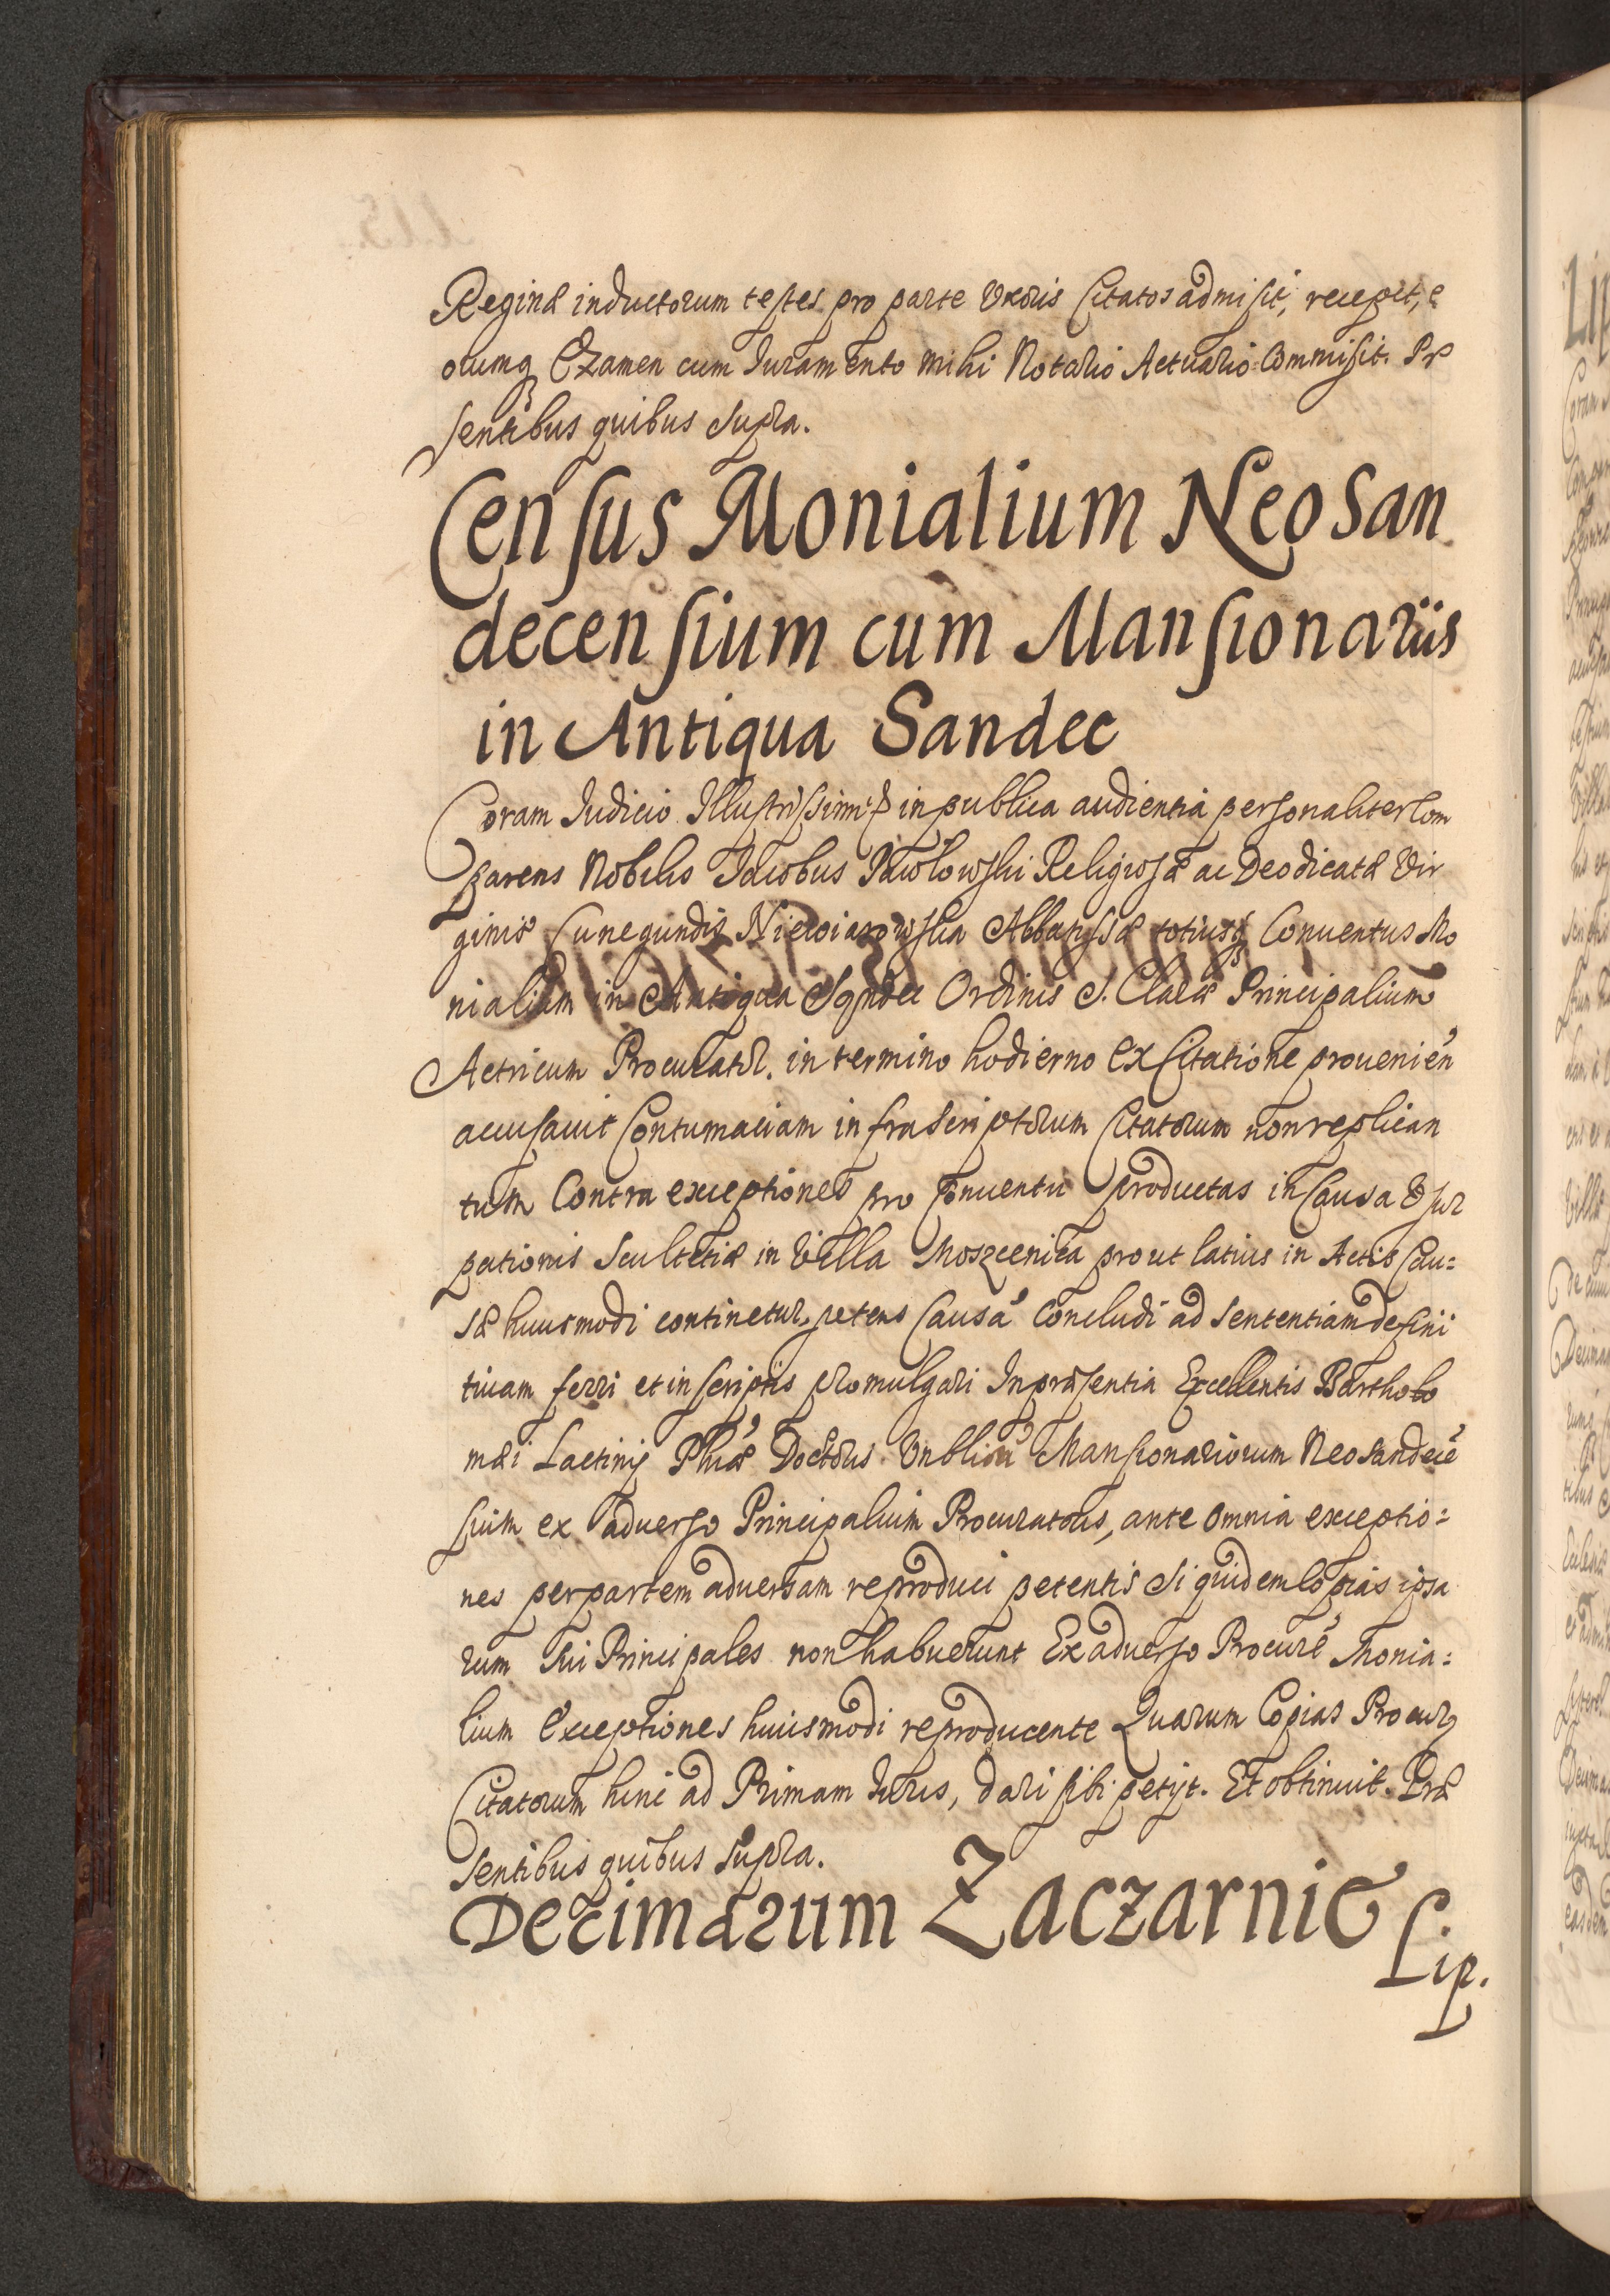 Reginæ inductorum testes pro parte Uxoris Citatos admisit, recepit, e
orumq Examen cum Juramento mihi Notario Actuario Commisit. Præ
sentibus quibus supra.
Census Monialium Neosan
decensium cum Mansionariis
in Antiqua Sandec
Coram Judicio Illustrissimi in publica audientia personaliter Com
parens Nobilis Jacobus Religiosæ ac Deodicatæ Vir
ginis Cunegundis Niewiarowska Abbatissæ totiusq Conuentus Mo
nialium in Antiqua Sandec Ordinis S. Claræ Principalium
Actricum Procurator. in termino hodierno ex Citatione prouenien
accusauit Contumaciam infrascriptorum Citatorum non replican
tum Contra exceptiones pro Conuentu productas in Causa Usur
pationis Scultetiæ in Villa Moszcenica prout latius in Actis Cau=
sæ huiusmodi continetur, petens Causã Concludi ad sententiam defini
tiuam ferri et in scriptis promulgari In præsentia Excellentis Bartholo
mæi Lactinij Phiæ Doctoris Mansionariorum Neosandecẽ
sium ex aduerso Principalium Procuratoris, ante omnia exceptio=
nes per partem aduersam reproduci petentis Siquidem Copias ipsa
rum sui Principales non habuerunt Ex aduerso Procurẽ Monia=
lium Exceptiones huiusmodi reproducente Quarum Copias Procur
Citatorum hinc ad Primam Juris, dari sibi petijt. Et obtinuit. Præ
sentibus quibus supra.
Decimarum Zaczarnie
Lip.